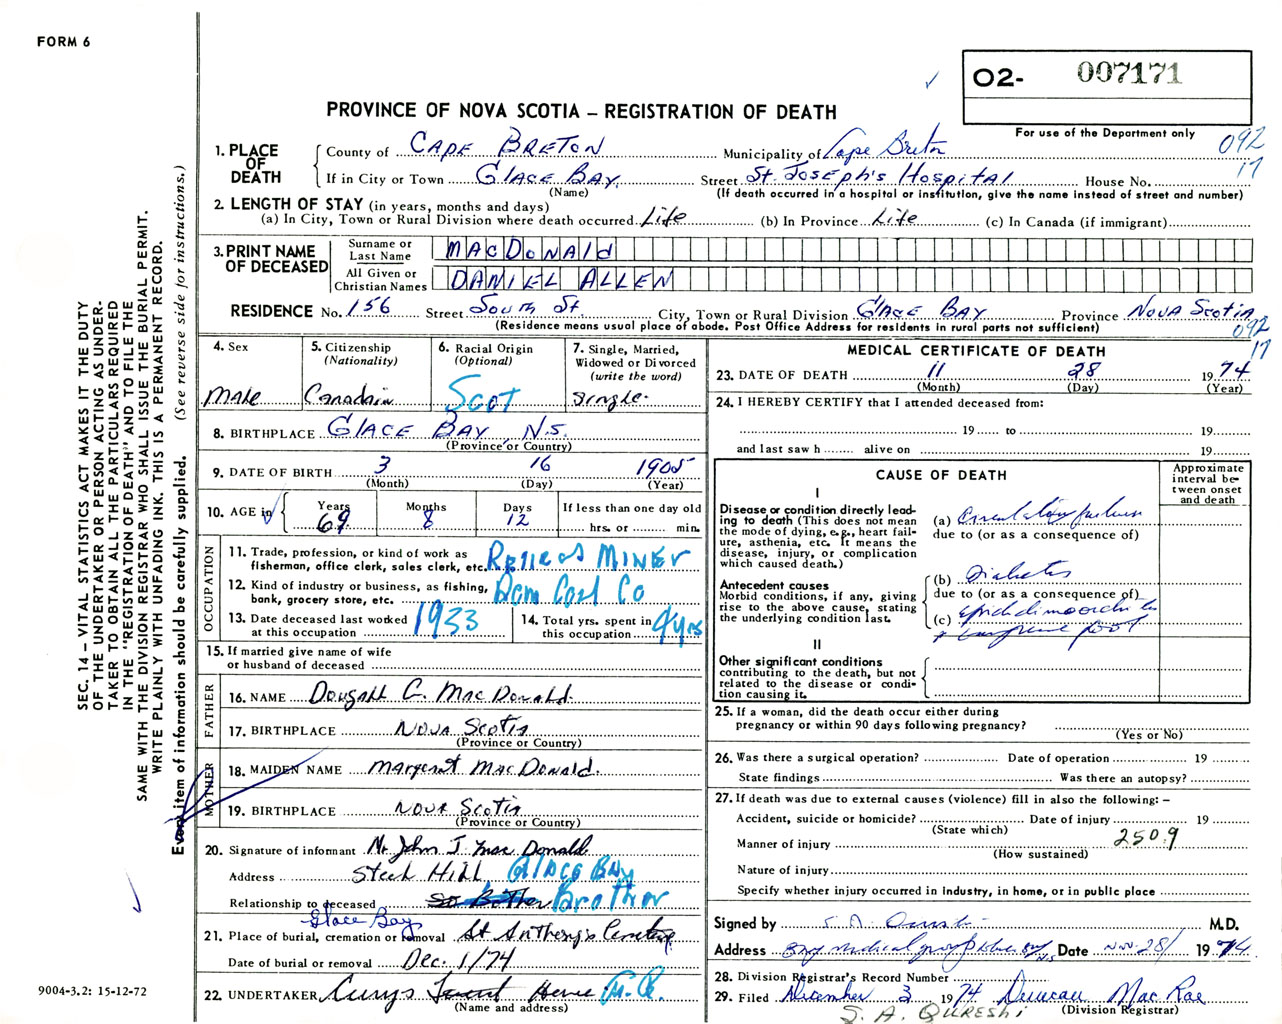 FORM 6
O2- 007171
PROVINCE OF NOVA SCOTIA – REGISTRATION OF DEATH
For use of the Department only
092
17
SEC. 14 – VITAL STATISTICS ACT MAKES IT THE DUTY
OF THE UNDERTAKER OR PERSON ACTING AS UNDER-
TAKER TO OBTAIN ALL THE PARTICULARS REQUIRED
IN THE "REGISTRATION OF DEATH" AND TO FILE THE
SAME WITH THE DIVISION REGISTRAR WHO SHALL ISSUE THE BURIAL PERMIT.
WRITE PLAINLY WITH UNFADING INK. THIS IS A PERMANENT RECORD.
Every item of information should be carefully supplied. (See reverse side for instructions.)
1. PLACE OF DEATH
County of CAPE BRETON Municipality of Cape Breton
If in City or Town GLACE BAY Street ST. JOSEPH'S HOSPITAL House No.
(Name) (If death occurred in a hospital or institution, give the name instead of street and number)
2. LENGTH OF STAY (in years, months and days)
(a) In City, Town or Rural Division where death occurred Life (b) In Province Life (c) In Canada (if immigrant)
3. PRINT NAME OF DECEASED
Surname or Last Name MACDONALD
All Given or Christian Names DANIEL ALLEN
RESIDENCE No. 156 Street SOUTH ST. City, Town or Rural Division GLACE BAY Province NOVA SCOTIA
(Residence means usual place of abode. Post Office Address for residents in rural parts not sufficient)
092
17
4. Sex Male
5. Citizenship (Nationality) Canadain
6. Racial Origin (Optional) SCOT
7. Single, Married, Widowed or Divorced (write the word) Single
8. BIRTHPLACE GLACE BAY, N.S.
(Province or Country)
9. DATE OF BIRTH 3 16 1905
(Month) (Day) (Year)
10. AGE in Years 69 Months 8 Days 12 If less than one day old hrs. or min.
OCCUPATION
11. Trade, profession, or kind of work as fisherman, office clerk, sales clerk, etc. RETIRED MINER
12. Kind of industry or business, as fishing, bank, grocery store, etc. Dom Coal Co
13. Date deceased last worked at this occupation 1933
14. Total yrs. spent in this occupation
15. If married give name of wife or husband of deceased
FATHER
16. NAME Dougall C. MacDonald
17. BIRTHPLACE NOVA SCOTIA
(Province or Country)
MOTHER
18. MAIDEN NAME Margaret MacDonald
19. BIRTHPLACE NOVA SCOTIA
(Province or Country)
20. Signature of informant Mr John J. MacDonald
Address Steele Hill, GLACE BAY
Relationship to deceased Brother
Glace Bay
21. Place of burial, cremation or removal St Anthony's Cemetery
Date of burial or removal Dec. 1/74
22. UNDERTAKER Curry's
(Name and address)
9004-3.2: 15-12-72
MEDICAL CERTIFICATE OF DEATH
23. DATE OF DEATH 11 28 1974
(Month) (Day) (Year)
24. I HEREBY CERTIFY that I attended deceased from:
19 to 19
and last saw h alive on 19
CAUSE OF DEATH
Approximate interval between onset and death
I
Disease or condition directly leading to death (This does not mean the mode of dying, e.g., heart failure, asthenia, etc. It means the disease, injury, or complication which caused death.)
(a) Circulatory failure
due to (or as a consequence of)
Antecedent causes
Morbid conditions, if any, giving rise to the above cause, stating the underlying condition last.
(b) Diabetes
due to (or as a consequence of)
(c) epididimoorchitis
+ gangrene foot
II
Other significant conditions contributing to the death, but not related to the disease or condition causing it.
25. If a woman, did the death occur either during pregnancy or within 90 days following pregnancy?
(Yes or No)
26. Was there a surgical operation? Date of operation 19
State findings Was there an autopsy?
27. If death was due to external causes (violence) fill in also the following: –
Accident, suicide or homicide? Date of injury 19
(State which)
Manner of injury 250.9
(How sustained)
Nature of injury
Specify whether injury occurred in industry, in home, or in public place
Signed by M.D.
Address Date Nov. 28/ 1974
28. Division Registrar's Record Number
29. Filed December 3 1974 Duncan MacRae
(Division Registrar)
S. A. QURESHI